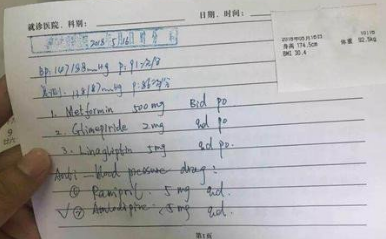 就诊医院、科别: 日期、时间:
2018 5 16
BP: 147/98mmHg P: 91次/分
138/87mmHg P: 86次/分
1. Metformin 500mg Bid po
2. Glimepiride 2mg qd po
3. Linagliptin 5mg qd po.
Anti-blood pressure drug:
① Ramipril. 5mg qd.
② Amlodipine. 5mg qd.
第1页
2018年05月16日
身高 174.5cm 体重 92.5kg
BMI 30.4